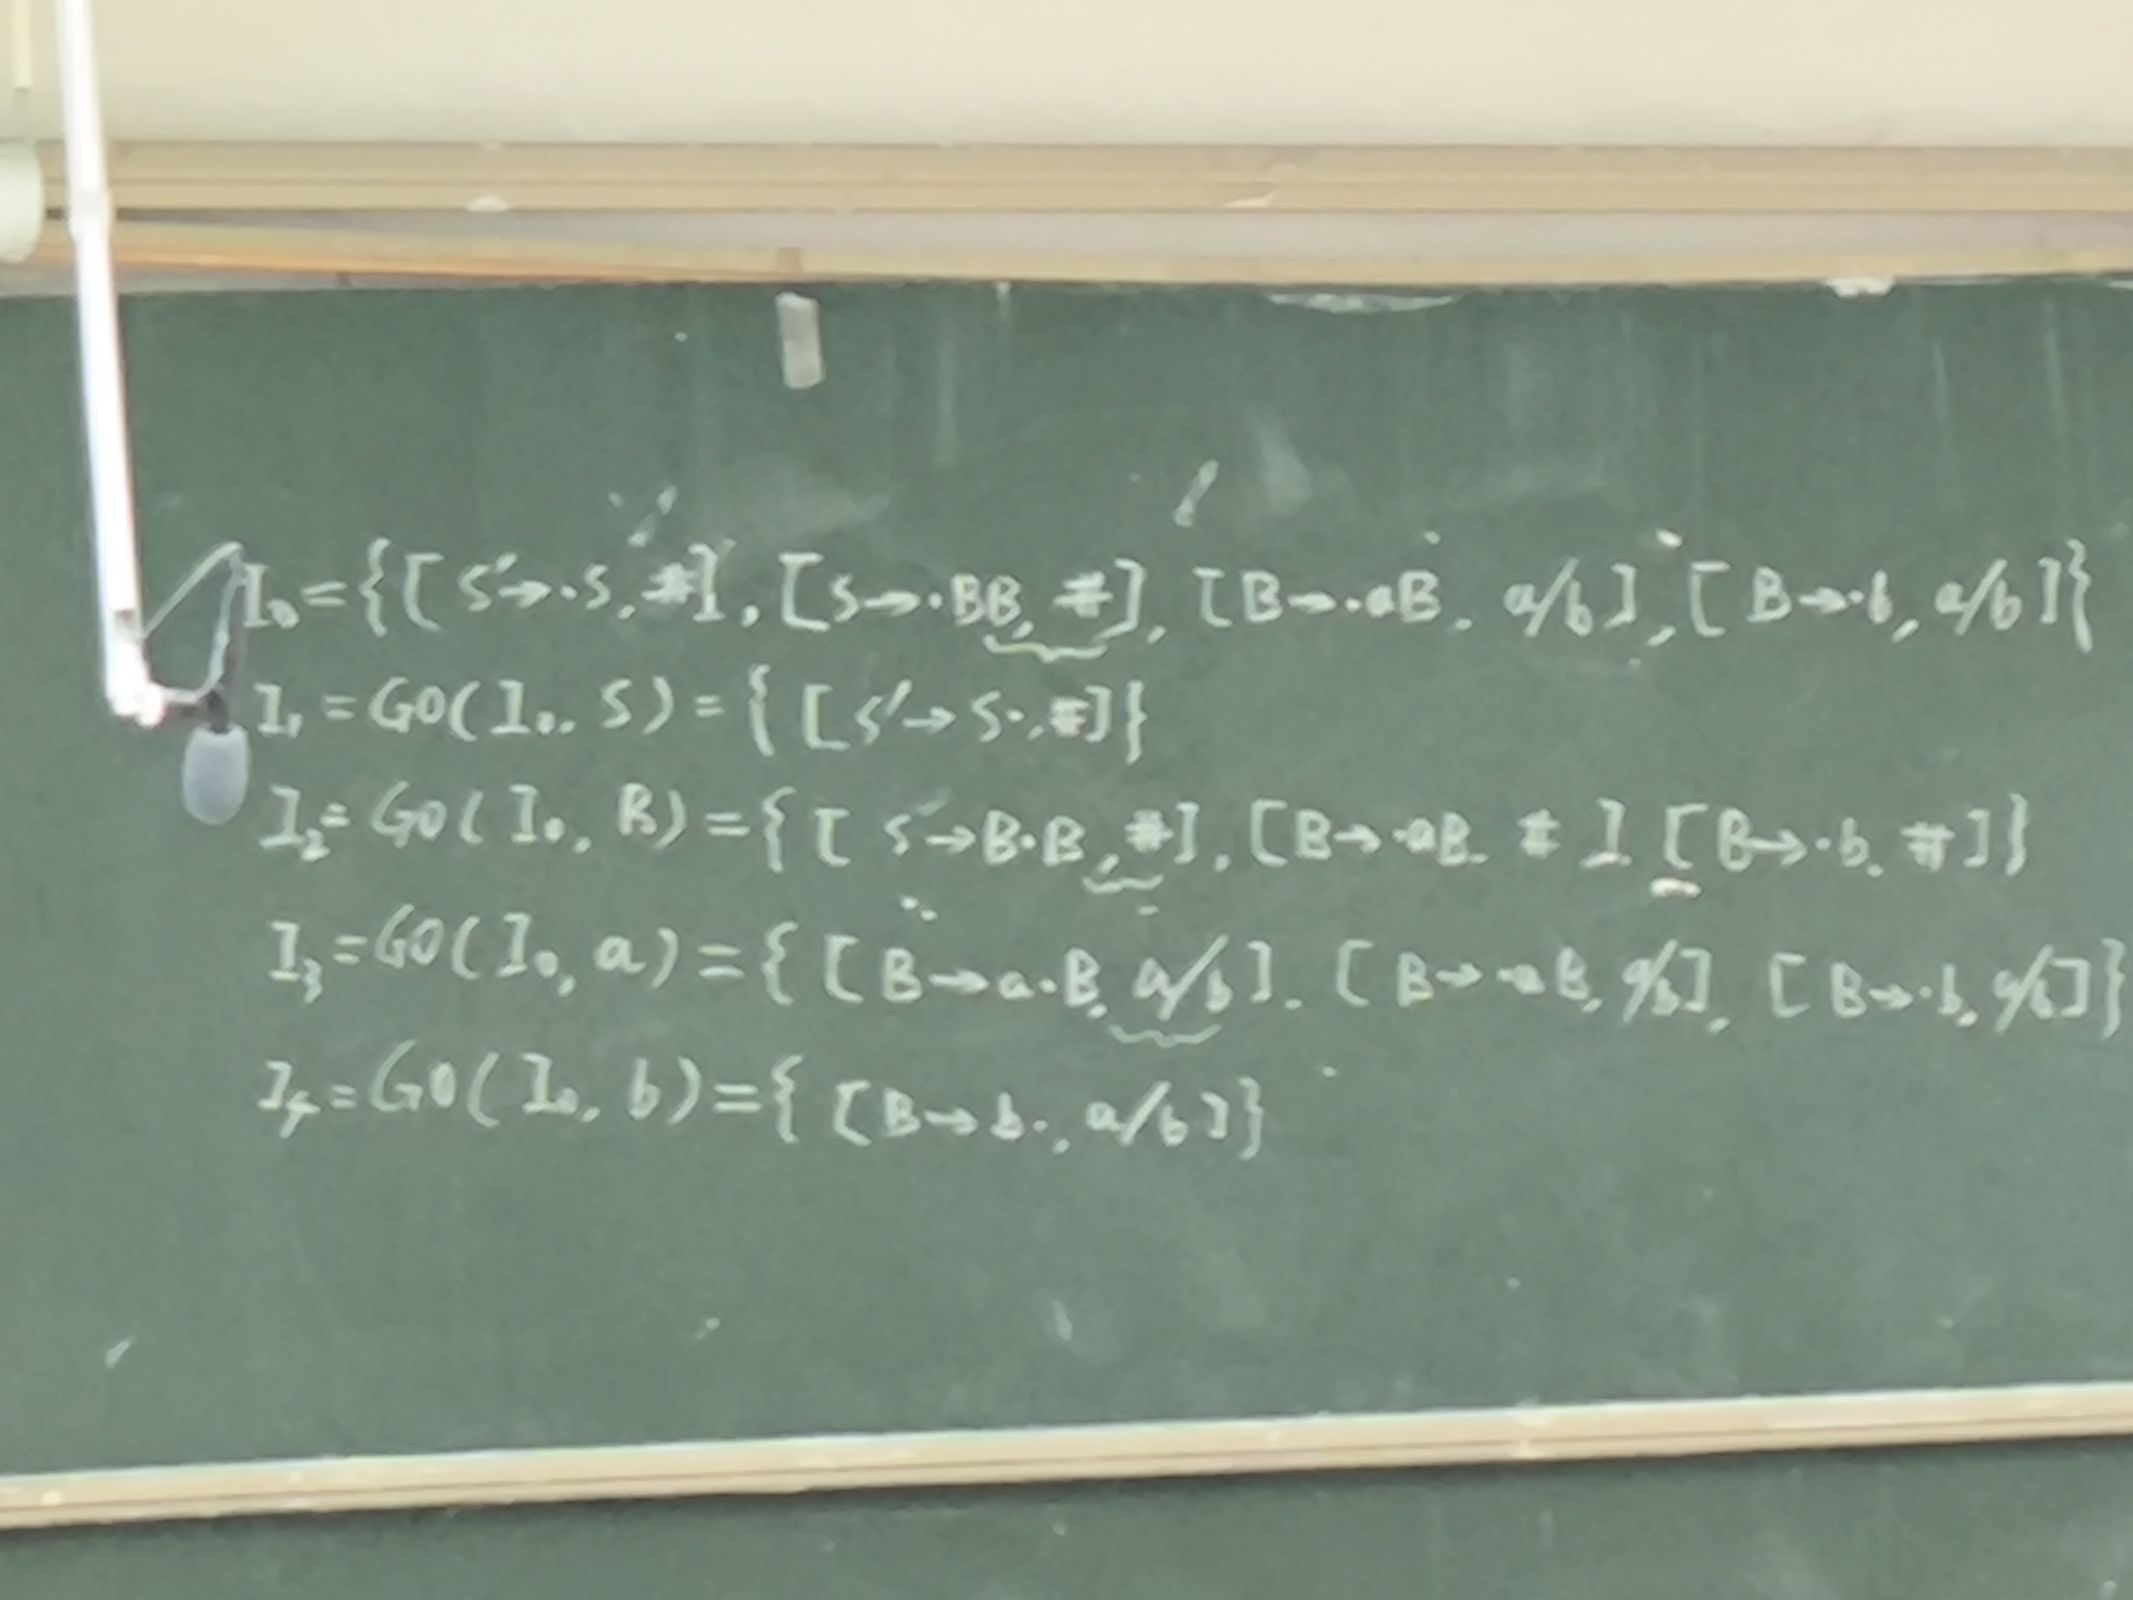 I₀={[S'→·S,#],[S→·BB,#],[B→·aB,a/b],[B→·b,a/b]}
I₁=GO(I₀,S)={[S'→S·,#]}
I₂=GO(I₀,B)={[S→B·B,#],[B→·aB,#][B→·b,#]}
I₃=GO(I₀,a)={[B→a·B,a/b],[B→·aB,a/b],[B→·b,a/b]}
I₄=GO(I₀,b)={[B→b·,a/b]}